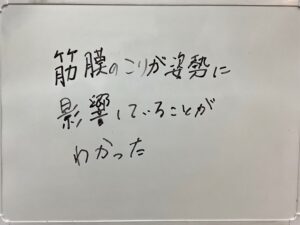 筋膜のこりが姿勢に
影響していることが
わかった